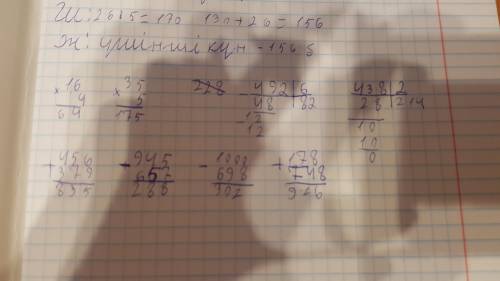 Ш: 26·5=130 130+26=156
Ж: үшінші күн - 156 б
× 16
4
64
× 35
5
175
228
- 492 | 6
48 | 82
12
12
438 | 2
28 | 214
10
10
0
+ 456
379
835
- 945
657
288
- 1000
698
302
+ 178
748
926